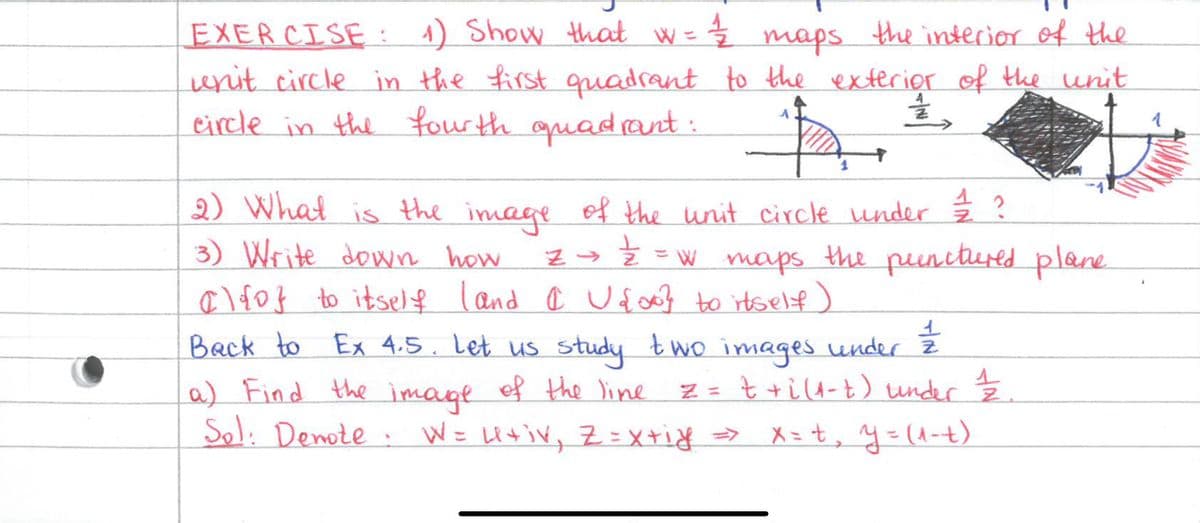 EXERCISE : 1) Show that w = 1/z maps the interior of the
unit circle in the first quadrant to the exterior of the unit
circle in the fourth quadrant :
1
1
1/z
→
1
-1
2) What is the image of the unit circle under 1/z ?
3) Write down how z → 1/z = w maps the punctured plane
ℂ\{0} to itself (and ℂ ∪ {∞} to itself)
Back to Ex 4.5. Let us study two images under 1/z
a) Find the image of the line z = t + i(1-t) under 1/z.
Sol: Denote : w = u+iv, z = x+iy ⇒ x = t, y = (1-t)